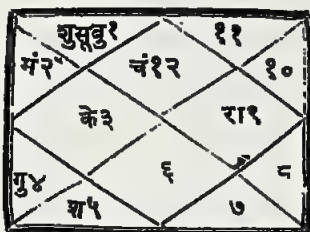 शुसूबु१ ११
मं२ चं१२ १०
के३ रा९
गु४ ६ ८
श५ ७